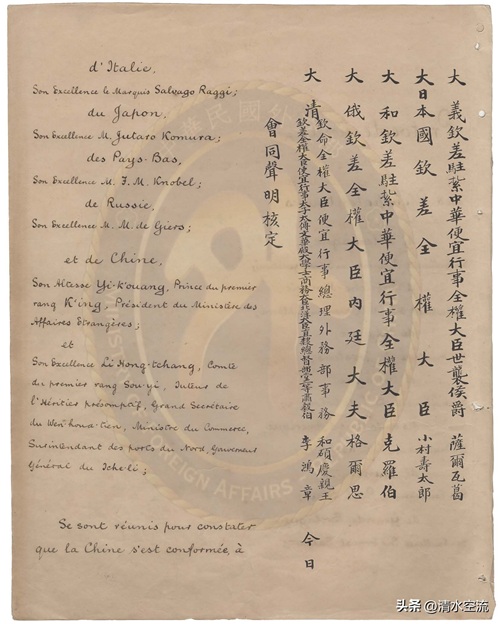 d'Italie,
Son Excellence le Marquis Salvago Raggi;
du Japon,
Son Excellence M. Jutaro Komura;
des Pays-Bas,
Son Excellence M. F. M. Knobel;
de Russie,
Son Excellence M. M. de Giers;
et de Chine,
Son Altesse Yi-K'ouang, Prince du premier
rang K'ing, Président du Ministère des
Affaires Etrangères;
et
Son Excellence Li Hong-tchang, Comte
du premier rang Sou-yi, Tuteur de
l'Héritier présomptif, Grand Secrétaire
du Wen houa tien, Ministre du Commerce,
Surintendant des ports du Nord, Gouverneur
Général du Tche-li;
Se sont réunis pour constater
que la Chine s'est conformée, à
大義欽差駐紮中華便宜行事全權大臣世襲侯爵薩爾瓦葛
大日本國欽差全權大臣小村壽太郎
大和欽差駐紮中華便宜行事全權大臣克羅伯
大俄欽差全權大臣內廷大夫格爾思
大清
欽命全權大臣便宜行事總理外務部事務和碩慶親王
欽差全權大臣便宜行事太子太傅文華殿大學士商務大臣北洋大臣直隸總督部堂一等肅毅伯李鴻章
今日
會同聲明核定
FOREIGN AFFAIRS
头条 @清水空流